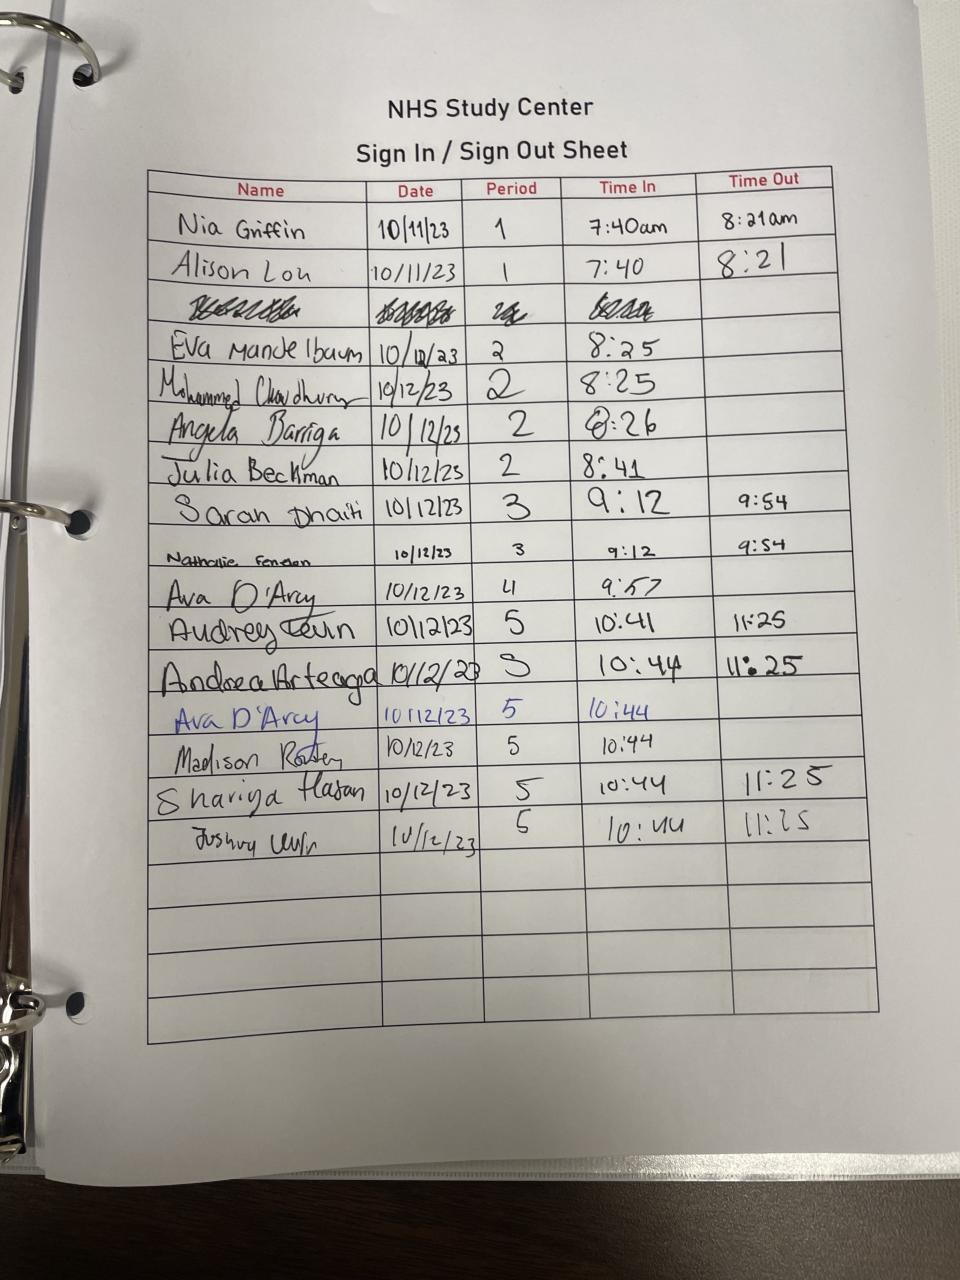 NHS Study Center
Sign In / Sign Out Sheet
Name Date Period Time In Time Out
Nia Griffin 10/11/23 1 7:40am 8:21am
Alison Lou 10/11/23 1 7:40 8:21
Eva Mandelbaum 10/12/23 2 8:25
Mohammed Chowdhury 10/12/23 2 8:25
Angela Barriga 10/12/23 2 8:26
Julia Beckman 10/12/23 2 8:41
Sarah Dhaiti 10/12/23 3 9:12 9:54
Nathalie 10/12/23 3 9:12 9:54
Ava D'Arcy 10/12/23 4 9:57
Audrey Levin 10/12/23 5 10:41 11:25
Andrea Arteaga 10/12/23 5 10:44 11:25
Ava D'Arcy 10/12/23 5 10:44
Madison 10/12/23 5 10:44
Shariya Hasan 10/12/23 5 10:44 11:25
10/12/23 5 10:44 11:25